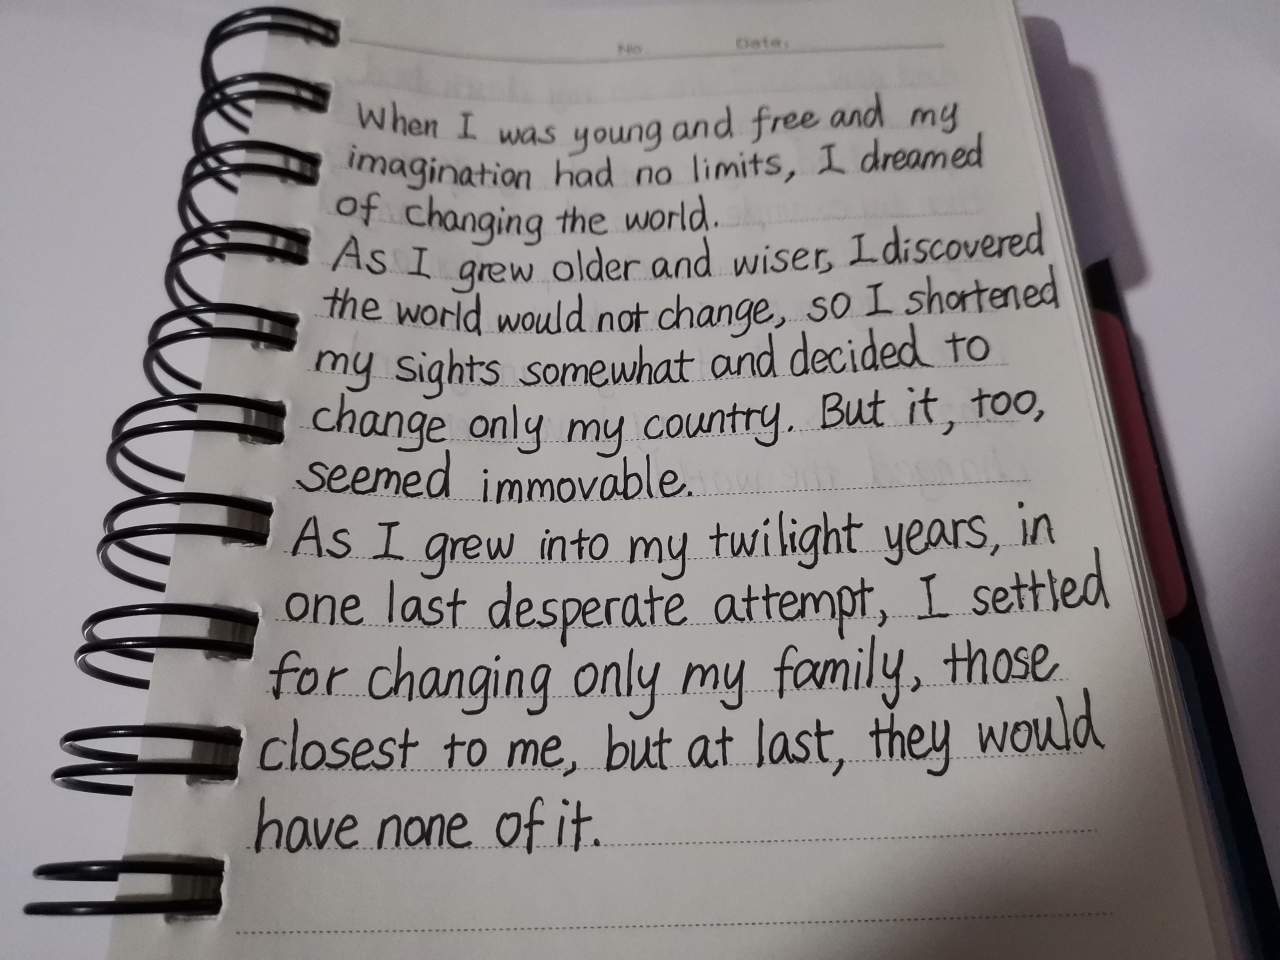 No. Date.
When I was young and free and my
imagination had no limits, I dreamed
of changing the world.
As I grew older and wiser, I discovered
the world would not change, so I shortened
my sights somewhat and decided to
change only my country. But it, too,
seemed immovable.
As I grew into my twilight years, in
one last desperate attempt, I settled
for changing only my family, those
closest to me, but at last, they would
have none of it.